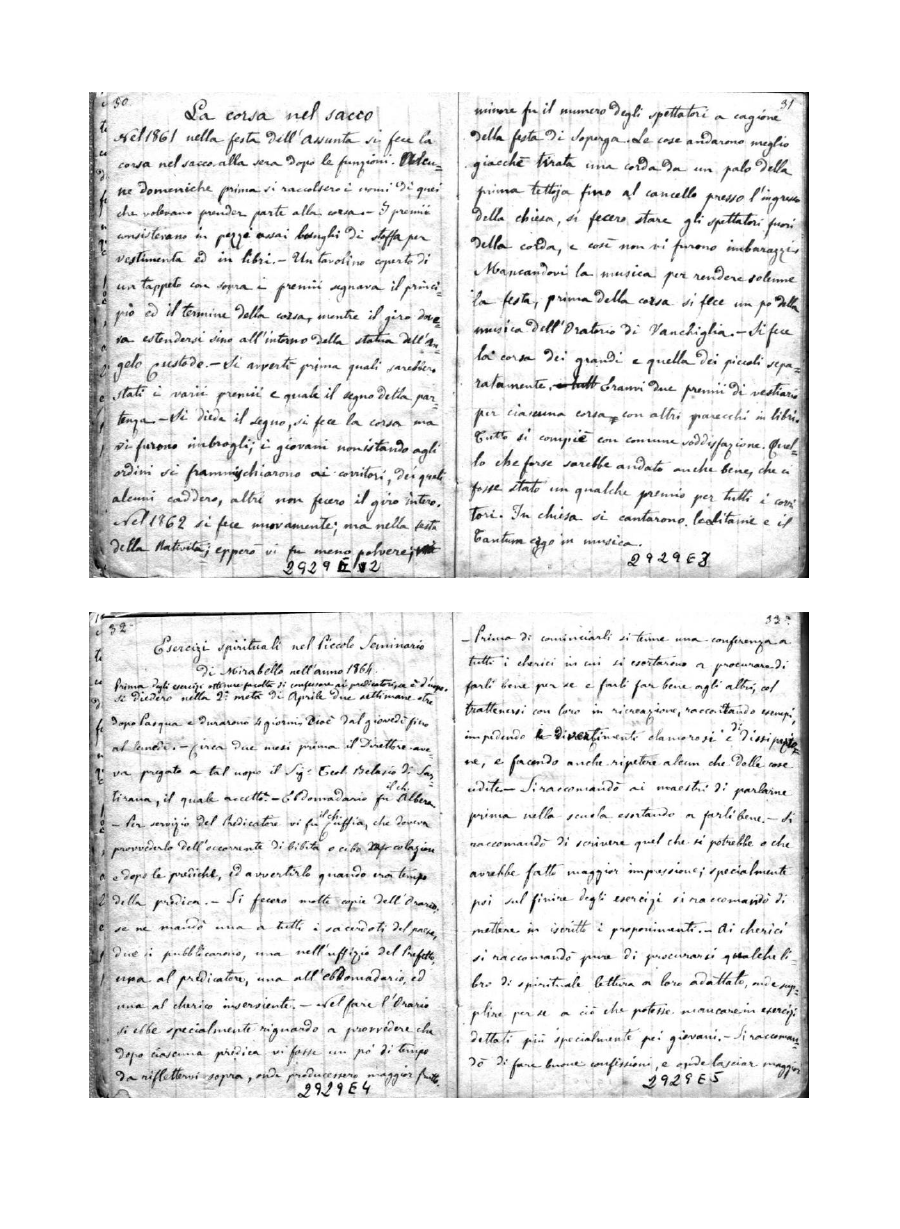 30
La corsa nel sacco
Nel 1861 nella festa dell'Assunta si fece la
corsa nel sacco alla sera dopo le funzioni. Alcu-
ne domeniche prima si raccolsero i nomi di quei
che volevano prender parte alla corsa. - I premii
consistevano in pezzi assai lunghi di stoffa per
vestimenta ed in libri. - Un tavolino coperto di
un tappeto con sopra i premii segnava il princi-
pio ed il termine della corsa, mentre il giro dove-
va estendersi sino all'intorno della statua dell'An-
gelo Custode. - Si avvertì prima quali sarebbero
stati i varii premii e quale il segno della par-
tenza. - Si diede il segno, si fece la corsa ma
vi furono imbrogli; i giovani non istando agli
ordini si frammischiarono ai corritori, dei quali
alcuni caddero, altri non fecero il giro intero.
Nel 1862 si fece nuovamente; ma nella festa
della Natività; epperò vi fu meno polvere;
2929E2
31
minore fu il numero degli spettatori a cagione
della festa di Soperga. Le cose andarono meglio
giacchè tirata una corda da un palo della
prima tettoja fino al cancello presso l'ingresso
della chiesa, si fecero stare gli spettatori fuori
della corda, e così non vi furono imbarazzi.
Mancandovi la musica per rendere solenne
la festa, prima della corsa si fece un po della
musica dell'Oratorio di Vanchiglia. - Si fece
la corsa dei grandi e quella dei piccoli sepa-
ratamente. Eranvi due premii di vestiario
per ciascuna corsa, con altri parecchi in libri.
Tutto si compiè con comune soddisfazione. Quel-
lo che forse sarebbe andato anche bene, che ci
fosse stato un qualche premio per tutti i corri
tori. In chiesa si cantarono le litanie e il
Tantum ergo in musica.
2929E3
32
Esercizi spirituali nel Piccolo Seminario
di Mirabello nell'anno 1864.
Prima degli esercizi ottenne facoltà di confessare ai predicatori,
si diedero nella 2ª metà di Aprile due settimane oltre
dopo Pasqua e durarono 4 giorni, cioè dal giovedì fino
al lunedì. - Circa due mesi prima il Direttore ave-
va pregato a tal uopo il Sig. Teol. Belasio di Sar-
tirana, il quale accettò. - Ebdomadario fu il ch. Albera
- Per servizio del Predicatore vi fu il ch. Cuffia, che doveva
provvederlo dell'occorrente di bibita o cibo dopo colazione
e dopo le prediche, ed avvertirlo quando era tempo
della predica. - Si fecero molte copie dell'Orario,
se ne mandò una a tutti i sacerdoti del paese,
due si pubblicarono, una nell'uffizio del Prefetto,
una al predicatore, una all'ebdomadario, ed
una al cherico inserviente. - Nel fare l'Orario
si ebbe specialmente riguardo a provvedere che
dopo ciascuna predica vi fosse un pò di tempo
da riflettervi sopra, onde producessero maggior frutto,
2929E4
33
- Prima di cominciarli si tenne una conferenza a
tutti i cherici in cui si esortarono a procurare di
farli bene per se e farli far bene agli altri, col
trattenersi con loro in ricreazione, raccontando esempi,
impedendo divertimenti clamorosi e di dissipazio-
ne, e facendo anche ripetere alcun che dalle cose
udite. - Si raccomandò ai maestri di parlarne
prima nella scuola esortando a farli bene. - Si
raccomandò di scrivere quel che si potrebbe o che
avrebbe fatto maggior impressione; specialmente
poi sul finire degli esercizi si raccomandò di
mettere in iscritto i proponimenti. - Ai cherici
si raccomandò pure di procurarsi qualche li-
bro di spirituale lettura a loro adattato, onde sup-
plire per se a ciò che potesse mancare in esercizi
dettati più specialmente pei giovani. - Si raccoman-
dò di fare buone confessioni, e onde lasciar maggior
2929E5